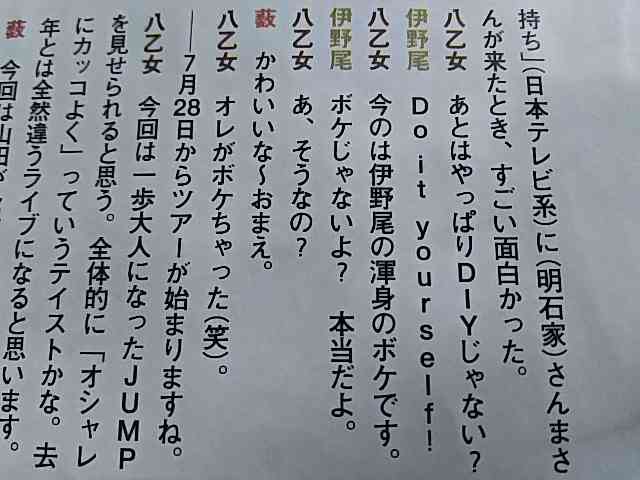 持ち」(日本テレビ系)に(明石家)さんまさ
んが来たとき、すごい面白かった。
八乙女　あとはやっぱりDIYじゃない?
伊野尾　Do it yourself!
八乙女　今のは伊野尾の渾身のボケです。
伊野尾　ボケじゃないよ?　本当だよ。
八乙女　あ、そうなの?
薮　かわいいな〜おまえ。
八乙女　オレがボケちゃった(笑)。
――7月28日からツアーが始まりますね。
八乙女　今回は一歩大人になったJUMP
を見せられると思う。全体的に「オシャレ
にカッコよく」っていうテイストかな。去
年とは全然違うライブになると思います。
薮　今回は山田が